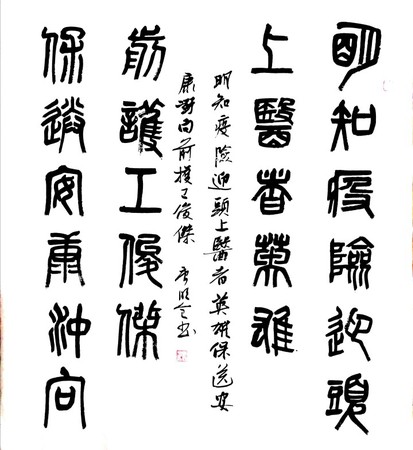 明知疫險迎頭
上醫者英雄
保送安康沖向
前護工俊傑
明知疫險迎頭上醫者英雄保送安
康沖向前護工俊傑